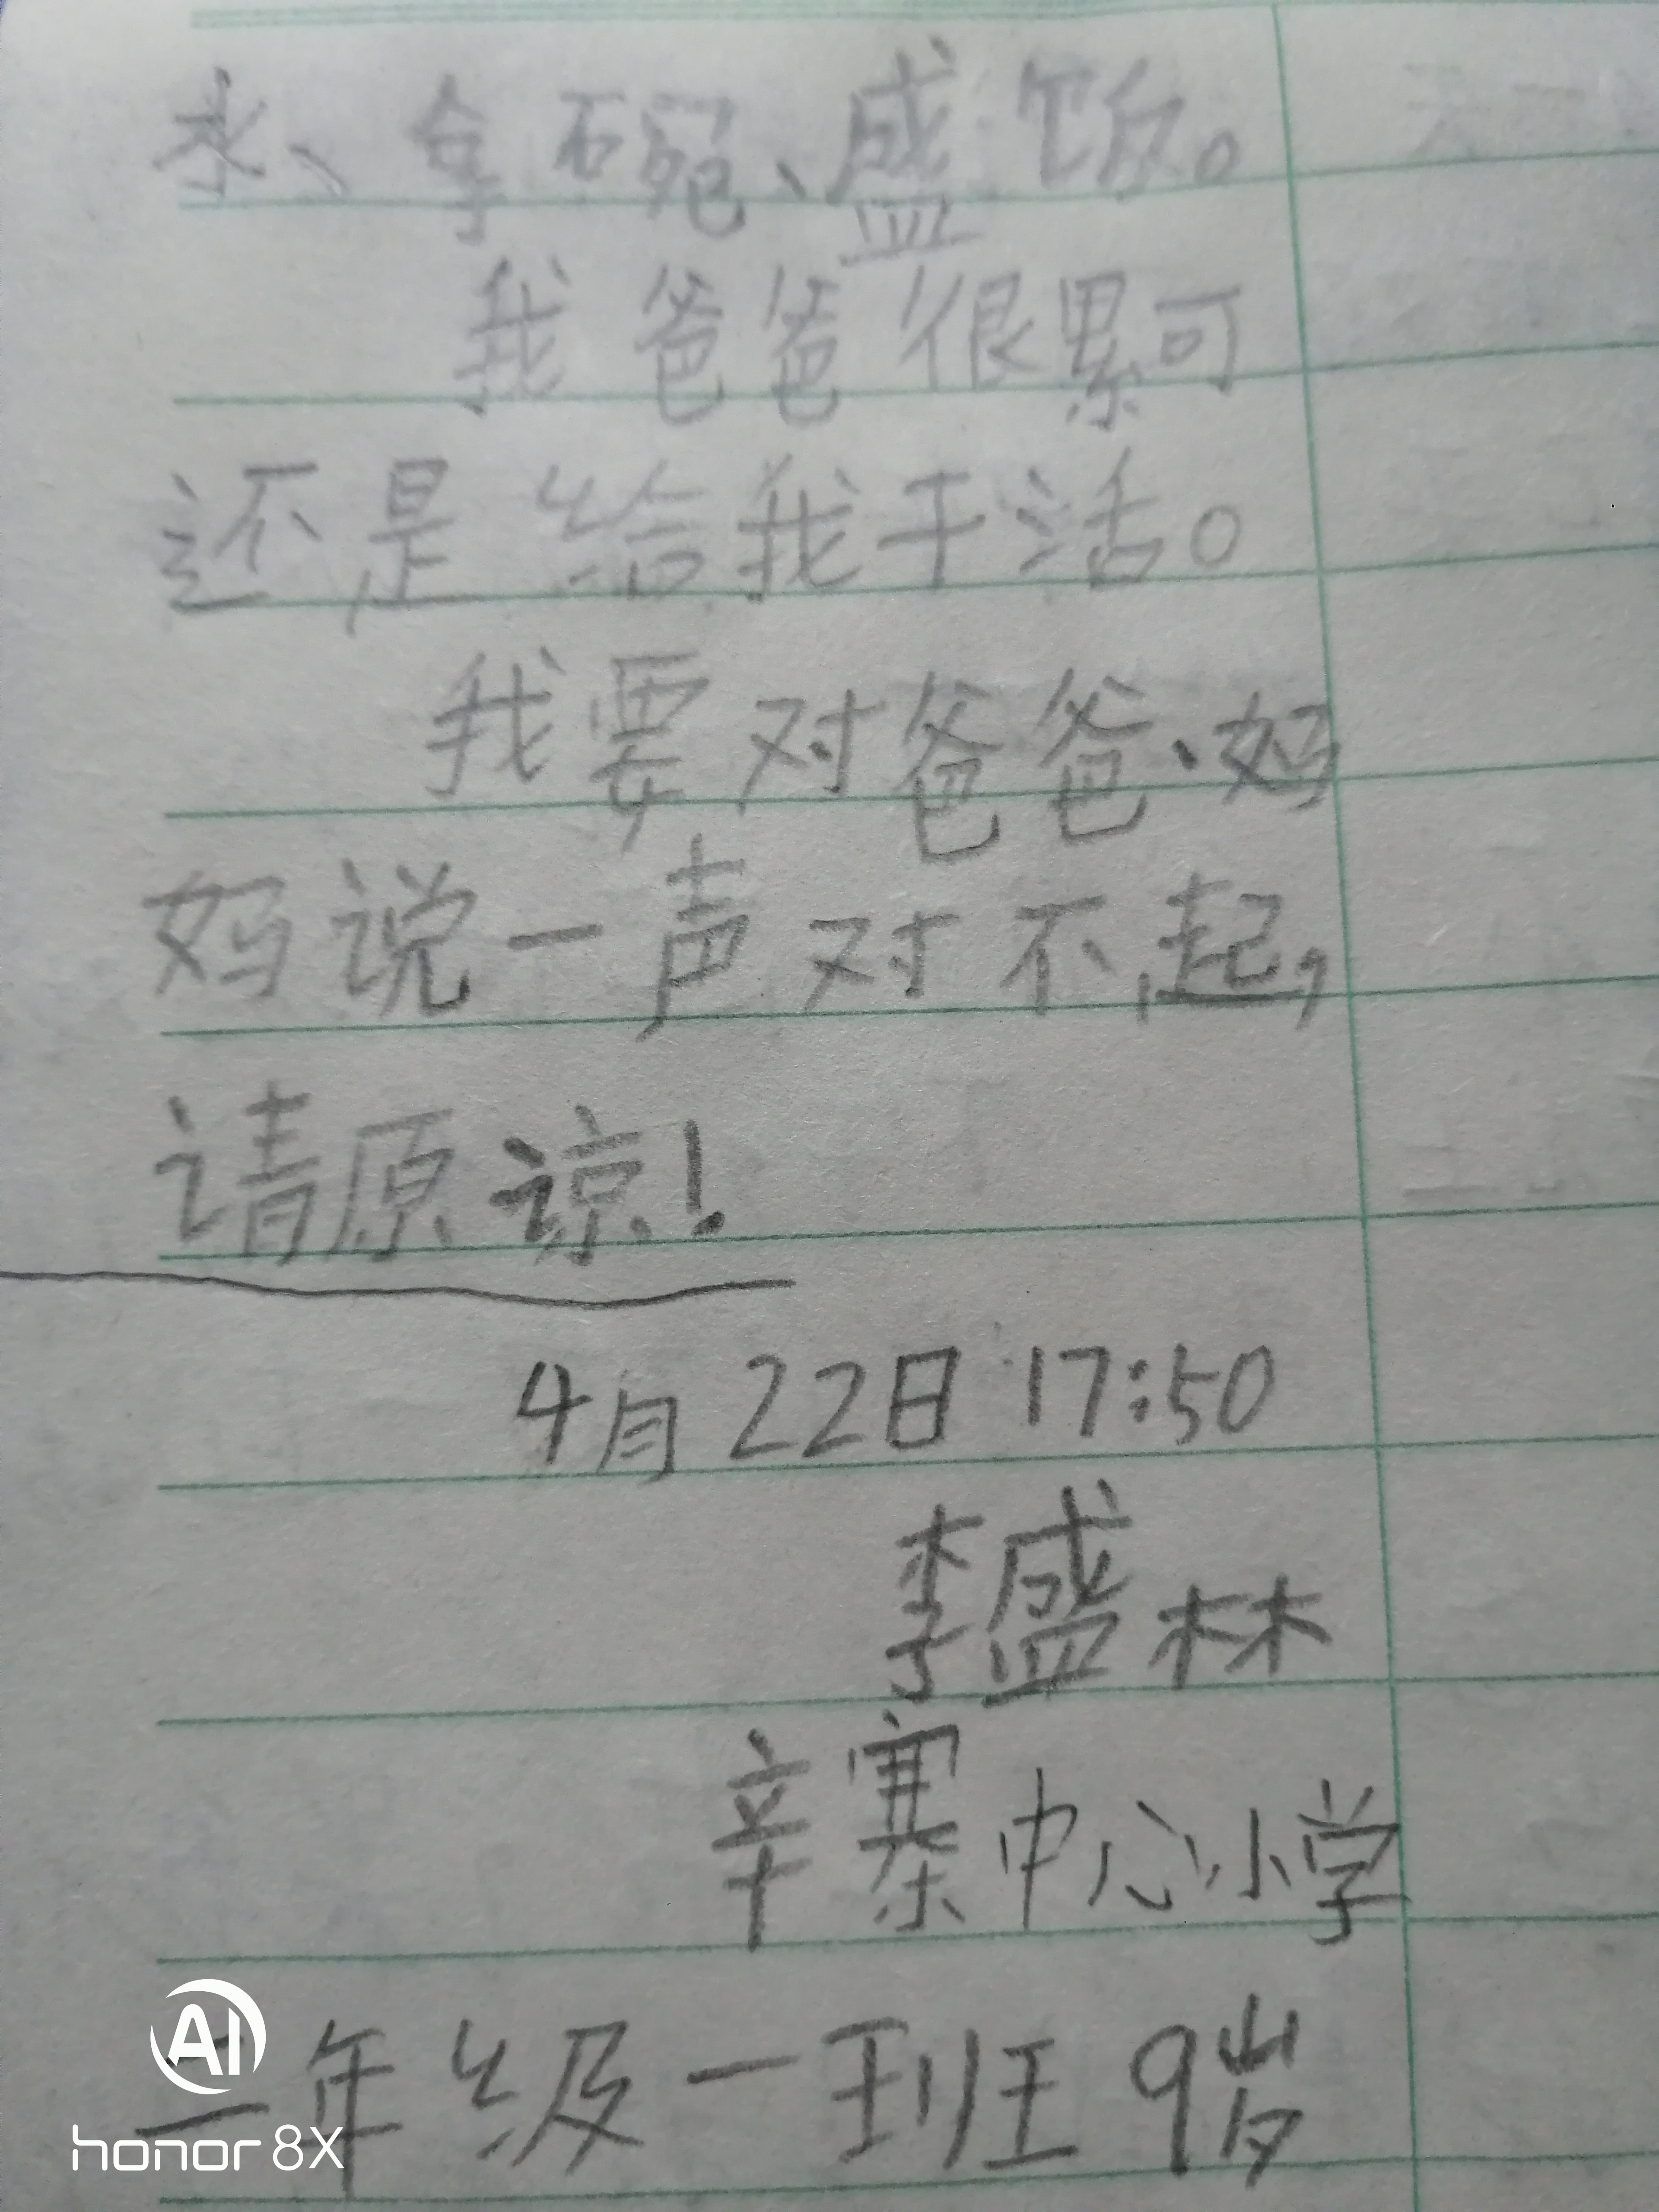 水、拿碗、盛饭。
我爸爸很累可
还是给我干活。
我要对爸爸、妈
妈说一声对不起,
请原谅!
4月22日 17:50
李盛林
辛寨中心小学
二年级一班 9岁
AI
honor 8X